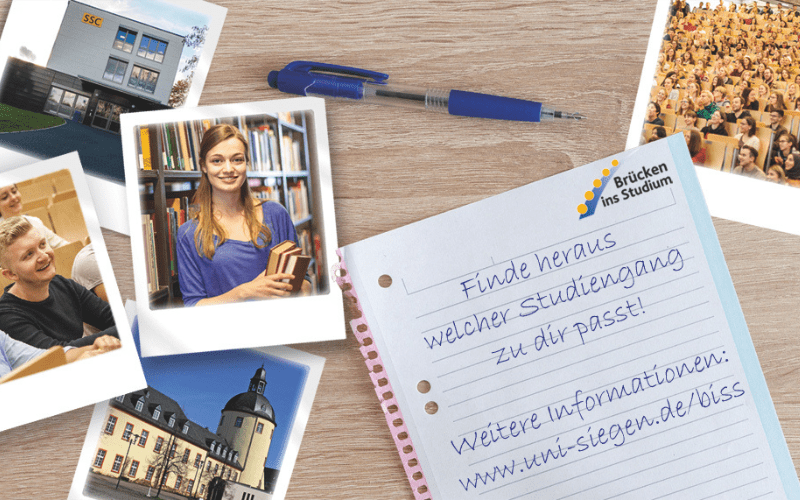 SSC
Brücken
ins Studium
Finde heraus
welcher Studiengang
zu dir passt!
Weitere Informationen:
www.uni-siegen.de/biss